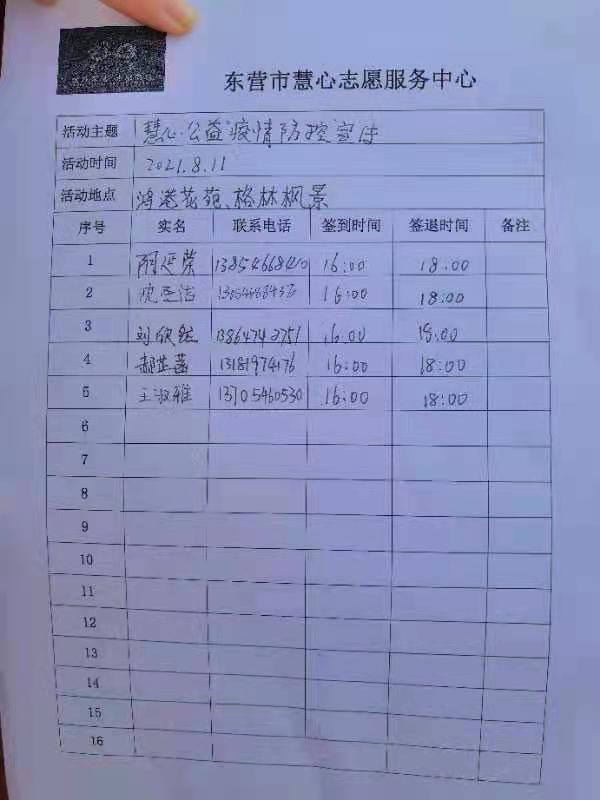 东营市慧心志愿服务中心
活动主题 慧心公益"疫情防控宣传
活动时间 2021.8.11
活动地点 鸿港花苑、格林枫景
序号 实名 联系电话 签到时间 签退时间 备注
1 延荣 13854668410 16:00 18:00
2 16:00 18:00
3 刘欣 13864742751 16:00 18:00
4 郝芷菡 13181974176 16:00 18:00
5 王淑雅 13705460530 16:00 18:00
6
7
8
9
10
11
12
13
14
15
16